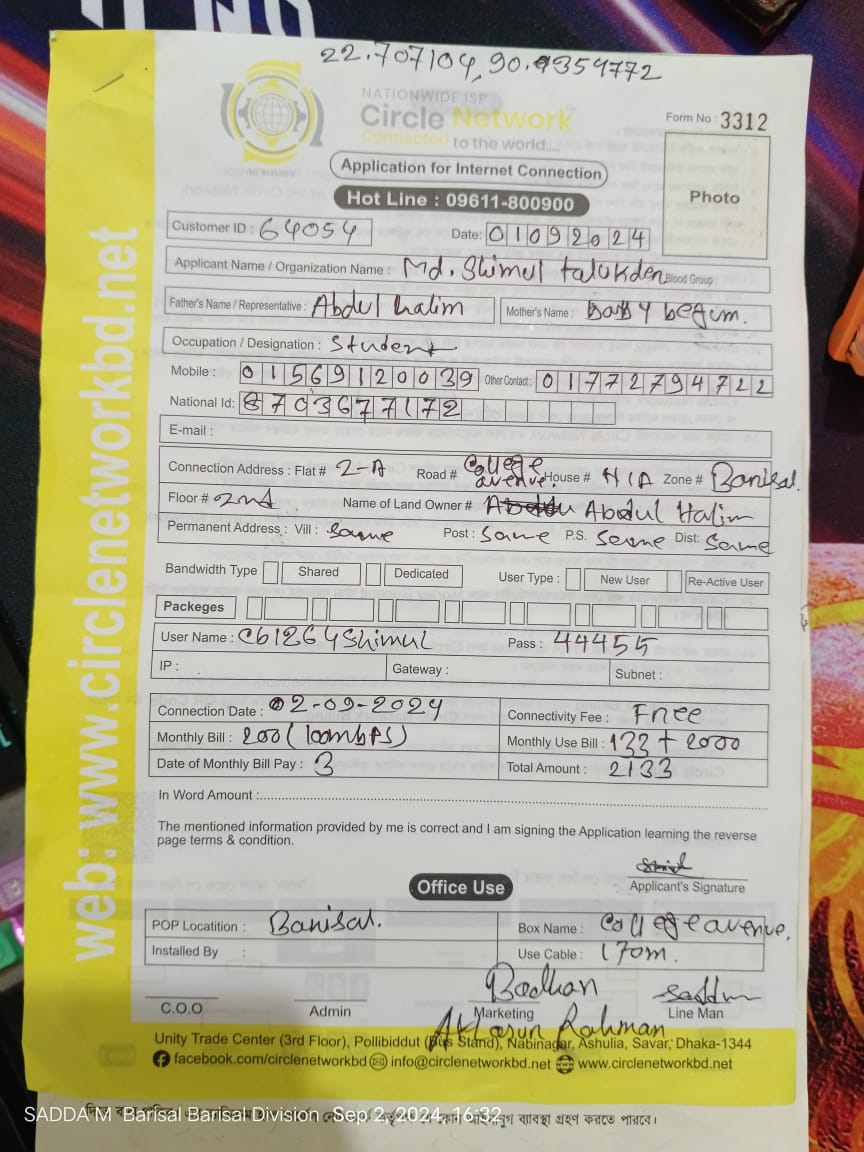 22.707104, 90.9359772
NATIONWIDE ISP
Circle Network
Connected to the world...
Form No : 3312
Application for Internet Connection
Photo
Hot Line : 09611-800900
Customer ID : 64054
Date: 01092024
Applicant Name / Organization Name : Md. Shimul talukder Blood Group :
Father's Name / Representative : Abdul halim Mother's Name : begum.
Occupation / Designation : Student
Mobile : 01569120039 Other Contact : 01772794722
National Id: 8703677172
E-mail :
Connection Address : Flat # 2-A Road # College avenue. House # N/A Zone # Barisal.
Floor # 2nd Name of Land Owner # Abdul Halim
Permanent Address : Vill : Same Post : Same P.S. Same Dist: Same
Bandwidth Type Shared Dedicated User Type : New User Re-Active User
Packeges
User Name : C61264Shimul Pass : 44455
IP : Gateway : Subnet :
Connection Date : 02-09-2024 Connectivity Fee : Free
Monthly Bill : 200 (100mbps) Monthly Use Bill : 133 + 2000
Date of Monthly Bill Pay : 3 Total Amount : 2133
In Word Amount :
The mentioned information provided by me is correct and I am signing the Application learning the reverse
page terms & condition.
Applicant's Signature
Office Use
POP Locatition : Barisal. Box Name : College avenue.
Installed By : Use Cable : 170m.
Badhan
C.O.O Admin Marketing Line Man
Rahman
Unity Trade Center (3rd Floor), Pollibiddut (Bus Stand), Nabinagar, Ashulia, Savar, Dhaka-1344
facebook.com/circlenetworkbd info@circlenetworkbd.net www.circlenetworkbd.net
web: www.circlenetworkbd.net
SADDAM Barisal Barisal Division Sep 2, 2024, 16:32
ব্যবস্থা গ্রহণ করতে পারবে।